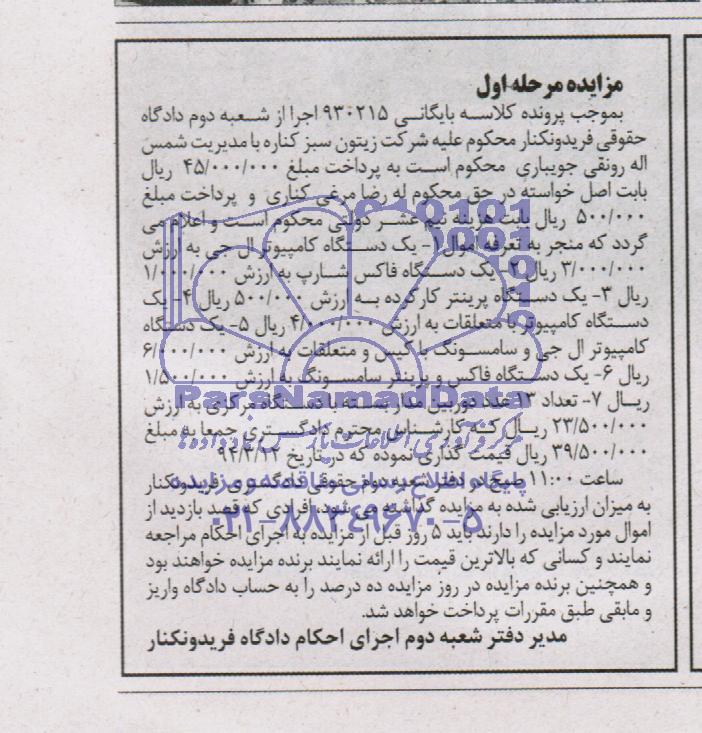 مزایده مرحله اول
بموجب پرونده کلاسه بایگانی ۹۳۰۲۱۵ اجرا از شعبه دوم دادگاه
حقوقی فریدونکنار محکوم علیه شرکت زیتون سبز کناره با مدیریت شمس
اله رونقی جویباری محکوم است به پرداخت مبلغ ۴۵/۰۰۰/۰۰۰ ریال
بابت اصل خواسته در حق محکوم له رضا مرغی کناری و پرداخت مبلغ
۵۰۰/۰۰۰ ریال بابت هزینه نیم عشر دولتی محکوم است و اعلام می
گردد که منجر به تعرفه اموال ۱- یک دستگاه کامپیوتر ال جی به ارزش
۳/۰۰۰/۰۰۰ ریال ۲- یک دستگاه فاکس شارپ به ارزش ۱/۰۰۰/۰۰۰
ریال ۳- یک دستگاه پرینتر کارکرده به ارزش ۵۰۰/۰۰۰ ریال ۴- یک
دستگاه کامپیوتر با متعلقات به ارزش ۴/۰۰۰/۰۰۰ ریال ۵- یک دستگاه
کامپیوتر ال جی و سامسونگ با کیس و متعلقات به ارزش ۶/۰۰۰/۰۰۰
ریال ۶- یک دستگاه فاکس و پرینتر سامسونگ به ارزش ۱/۵۰۰/۰۰۰
ریال ۷- تعداد ۱۳ عدد دوربین مدار بسته با دستگاه مرکزی به ارزش
۲۳/۵۰۰/۰۰۰ ریال که کارشناس محترم دادگستری جمعا به مبلغ
۳۹/۵۰۰/۰۰۰ ریال قیمت گذاری نموده که در تاریخ ۹۴/۳/۲۲
ساعت ۱۱:۰۰ صبح در دفتر شعبه دوم حقوقی دادگستری فریدونکنار
به میزان ارزیابی شده به مزایده گذاشته می شود، افرادی که قصد بازدید از
اموال مورد مزایده را دارند باید ۵ روز قبل از مزایده به اجرای احکام مراجعه
نمایند و کسانی که بالاترین قیمت را ارائه نمایند برنده مزایده خواهند بود
و همچنین برنده مزایده در روز مزایده ده درصد را به حساب دادگاه واریز
و مابقی طبق مقررات پرداخت خواهد شد.
مدیر دفتر شعبه دوم اجرای احکام دادگاه فریدونکنار
ParsNamadData
پایگاه اطلاع رسانی مناقصه و مزایده
۰۲۱-۸۸۳۴۹۶۷۰-۵